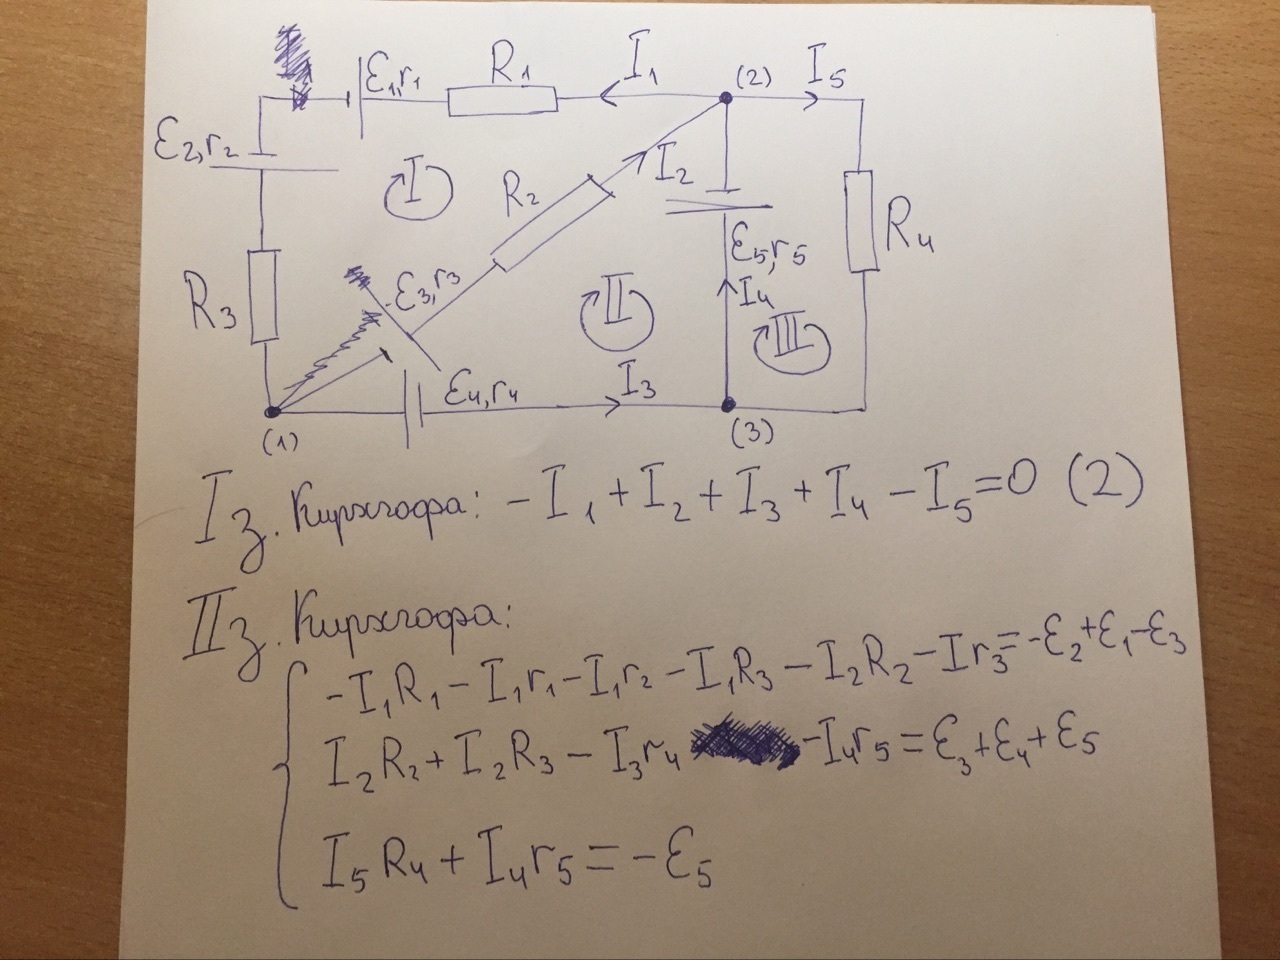 ℰ₁,r₁ R₁ I₁ (2) I₅
ℰ₂,r₂ I R₂ I₂ R₄
R₃ ℰ₃,r₃ II ℰ₅,r₅
I₄ III
ℰ₄,r₄ I₃
(1) (3)
I з. Кирхгофа: -I₁+I₂+I₃+I₄-I₅=0 (2)
II з. Кирхгофа:
-I₁R₁-I₁r₁-I₁r₂-I₁R₃-I₂R₂-Ir₃=-ℰ₂+ℰ₁-ℰ₃
I₂R₂+I₂R₃-I₃r₄ -I₄r₅=ℰ₃+ℰ₄+ℰ₅
I₅R₄+I₄r₅=-ℰ₅